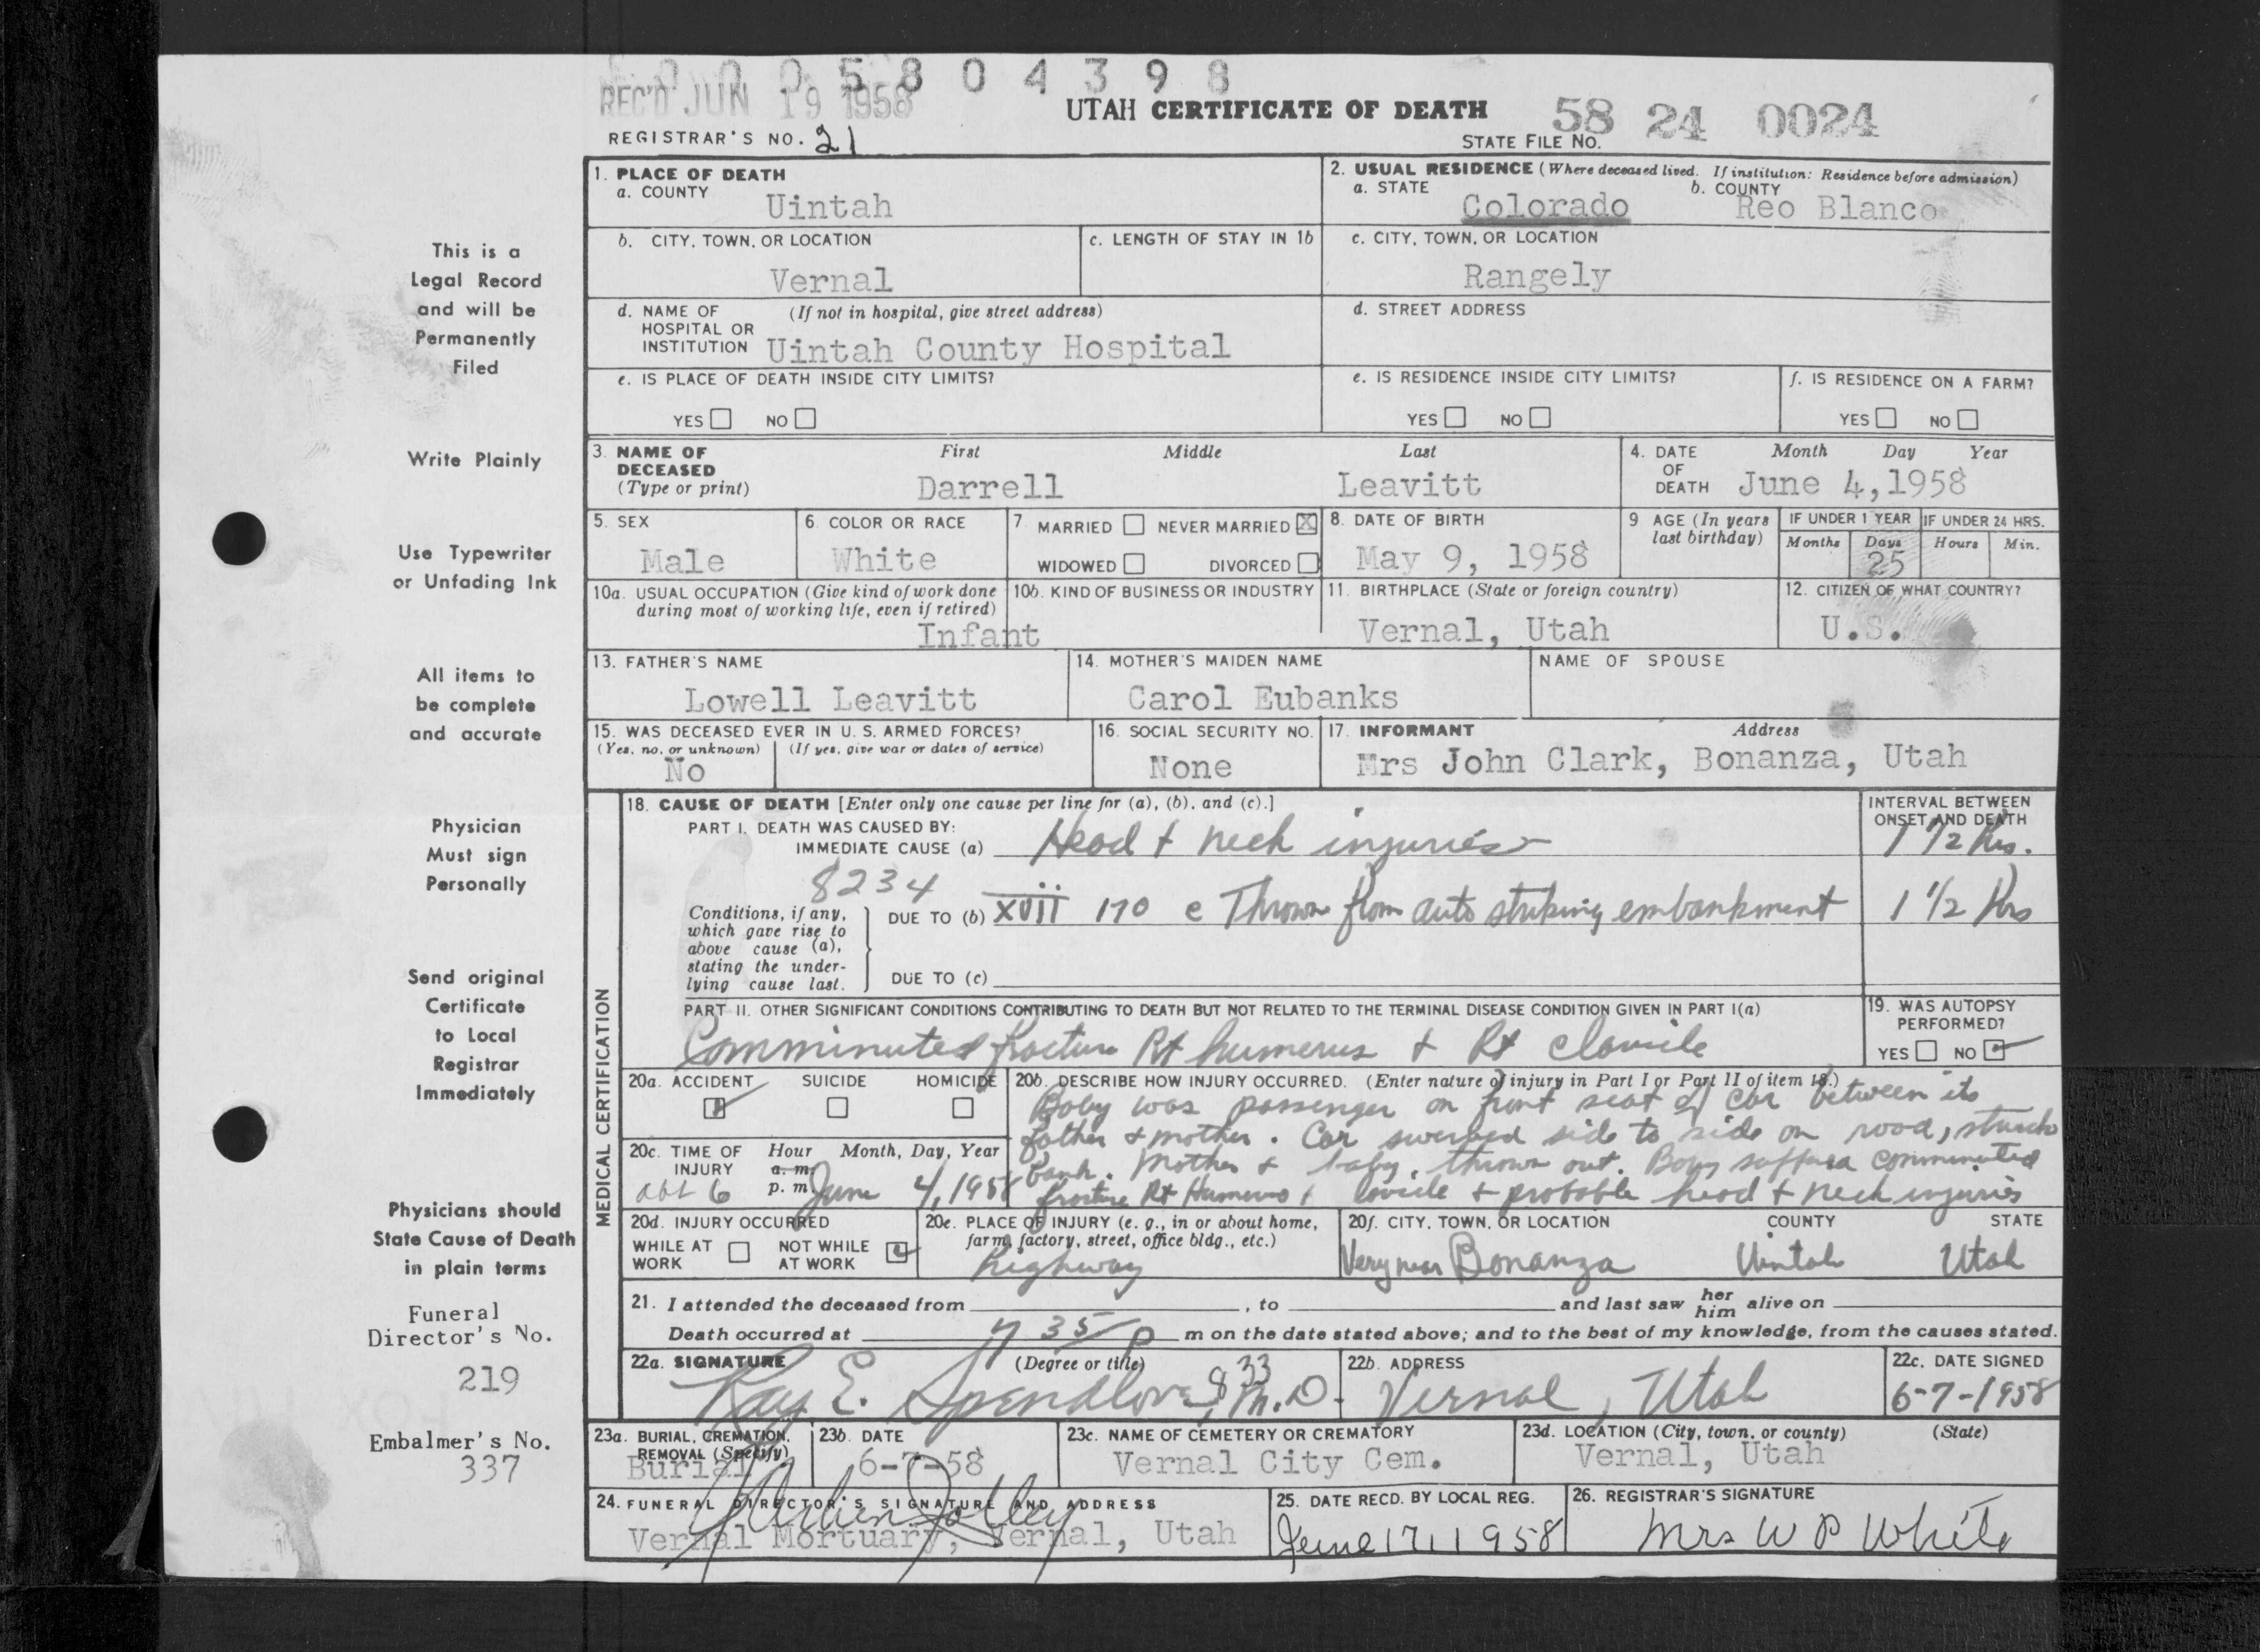 0 0 0 5 8 0 4 3 9 8
REC'D JUN 19 1958
UTAH CERTIFICATE OF DEATH
58 24 0024
REGISTRAR'S NO. 21
STATE FILE NO.
1. PLACE OF DEATH
a. COUNTY
Uintah
2. USUAL RESIDENCE (Where deceased lived. If institution: Residence before admission)
a. STATE
Colorado
b. COUNTY
Reo Blanco
b. CITY, TOWN, OR LOCATION
Vernal
c. LENGTH OF STAY IN 1b
c. CITY, TOWN, OR LOCATION
Rangely
d. NAME OF HOSPITAL OR INSTITUTION
(If not in hospital, give street address)
Uintah County Hospital
d. STREET ADDRESS
e. IS PLACE OF DEATH INSIDE CITY LIMITS?
YES NO
e. IS RESIDENCE INSIDE CITY LIMITS?
YES NO
f. IS RESIDENCE ON A FARM?
YES NO
3. NAME OF DECEASED
(Type or print)
First Middle Last
Darrell Leavitt
4. DATE OF DEATH
Month Day Year
June 4, 1958
5. SEX
Male
6. COLOR OR RACE
White
7. MARRIED NEVER MARRIED X
WIDOWED DIVORCED
8. DATE OF BIRTH
May 9, 1958
9 AGE (In years last birthday)
IF UNDER 1 YEAR
Months Days
25
IF UNDER 24 HRS.
Hours Min.
10a. USUAL OCCUPATION (Give kind of work done during most of working life, even if retired)
Infant
10b. KIND OF BUSINESS OR INDUSTRY
11. BIRTHPLACE (State or foreign country)
Vernal, Utah
12. CITIZEN OF WHAT COUNTRY?
U.S.
13. FATHER'S NAME
Lowell Leavitt
14. MOTHER'S MAIDEN NAME
Carol Eubanks
NAME OF SPOUSE
15. WAS DECEASED EVER IN U. S. ARMED FORCES?
(Yes, no, or unknown) (If yes, give war or dates of service)
No
16. SOCIAL SECURITY NO.
None
17. INFORMANT Address
Mrs John Clark, Bonanza, Utah
MEDICAL CERTIFICATION
18. CAUSE OF DEATH [Enter only one cause per line for (a), (b), and (c).]
INTERVAL BETWEEN ONSET AND DEATH
PART I. DEATH WAS CAUSED BY:
IMMEDIATE CAUSE (a) Head + neck injuries
1 1/2 Hrs.
8234
Conditions, if any, which gave rise to above cause (a), stating the underlying cause last.
DUE TO (b) xvii 170 c Thrown from auto striking embankment
1 1/2 Hrs
DUE TO (c)
PART II. OTHER SIGNIFICANT CONDITIONS CONTRIBUTING TO DEATH BUT NOT RELATED TO THE TERMINAL DISEASE CONDITION GIVEN IN PART I(a)
Comminuted fracture Rt humerus + Rt clavicle
19. WAS AUTOPSY PERFORMED?
YES NO
20a. ACCIDENT SUICIDE HOMICIDE
20b. DESCRIBE HOW INJURY OCCURRED. (Enter nature of injury in Part I or Part II of item 18.)
Baby was passenger on front seat of car between its
father & mother. Car swerved side to side on road, struck
bank. Mother & baby thrown out. Boy comminuted
fracture Rt Humerus + probable head + neck injuries
20c. TIME OF INJURY
Hour Month, Day, Year
a. m.
p. m.
abt 6 June 4, 1958
20d. INJURY OCCURRED
WHILE AT WORK NOT WHILE AT WORK
20e. PLACE OF INJURY (e. g., in or about home, farm, factory, street, office bldg., etc.)
highway
20f. CITY, TOWN, OR LOCATION COUNTY STATE
Very near Bonanza Uintah Utah
21. I attended the deceased from , to and last saw her him alive on
Death occurred at 7 35 p m on the date stated above; and to the best of my knowledge, from the causes stated.
22a. SIGNATURE (Degree or title)
833
Ray E. Spendlove, M.D.
22b. ADDRESS
Vernal, Utah
22c. DATE SIGNED
6-7-1958
23a. BURIAL, CREMATION, REMOVAL (Specify)
Burial
23b. DATE
6-7-58
23c. NAME OF CEMETERY OR CREMATORY
Vernal City Cem.
23d. LOCATION (City, town, or county) (State)
Vernal, Utah
24. FUNERAL DIRECTOR'S SIGNATURE AND ADDRESS
Vernal Mortuary, Vernal, Utah
25. DATE RECD. BY LOCAL REG.
June 17, 1958
26. REGISTRAR'S SIGNATURE
Mrs W P White
This is a
Legal Record
and will be
Permanently
Filed
Write Plainly
Use Typewriter
or Unfading Ink
All items to
be complete
and accurate
Physician
Must sign
Personally
Send original
Certificate
to Local
Registrar
Immediately
Physicians should
State Cause of Death
in plain terms
Funeral
Director's No.
219
Embalmer's No.
337